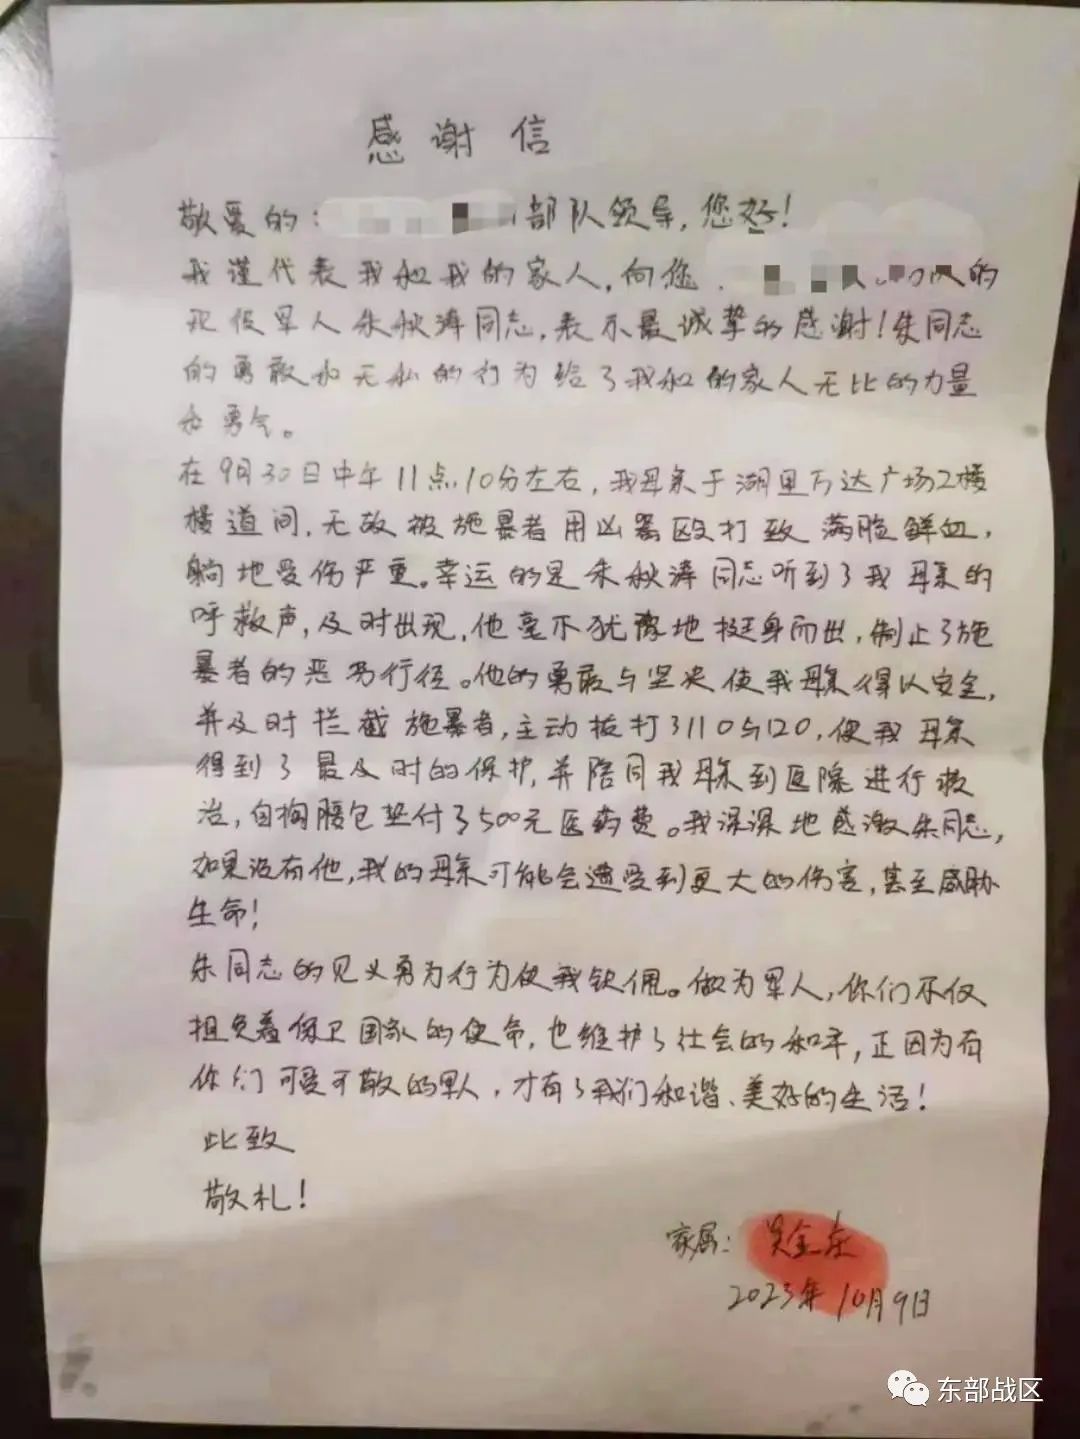 感谢信
敬爱的: 部队领导,您好!
我谨代表我和我的家人,向您 的
现役军人朱秋涛同志,表示最诚挚的感谢!朱同志
的勇敢和无私的行为给了我和的家人无比的力量
和勇气。
在9月30日中午11点10分左右,我母亲于湖里万达广场2楼
楼道间,无故被施暴者用凶器殴打致满脸鲜血,
躺地受伤严重。幸运的是朱秋涛同志听到了我母亲的
呼救声,及时出现,他毫不犹豫地挺身而出,制止了施
暴者的恶劣行径。他的勇敢与坚决使我母亲得以安全,
并及时拦截施暴者,主动拨打了110与120,使我母亲
得到了最及时的保护,并陪同我母亲到医院进行救
治,自掏腰包垫付了500元医药费。我深深地感激朱同志,
如果没有他,我的母亲可能会遭受到更大的伤害,甚至威胁
生命!
朱同志的见义勇为行为使我钦佩。做为军人,你们不仅
担负着保卫国家的使命,也维护了社会的和平,正因为有
你们可爱可敬的军人,才有了我们和谐、美好的生活!
此致
敬礼!
家属:吴金
2023年10月9日
东部战区